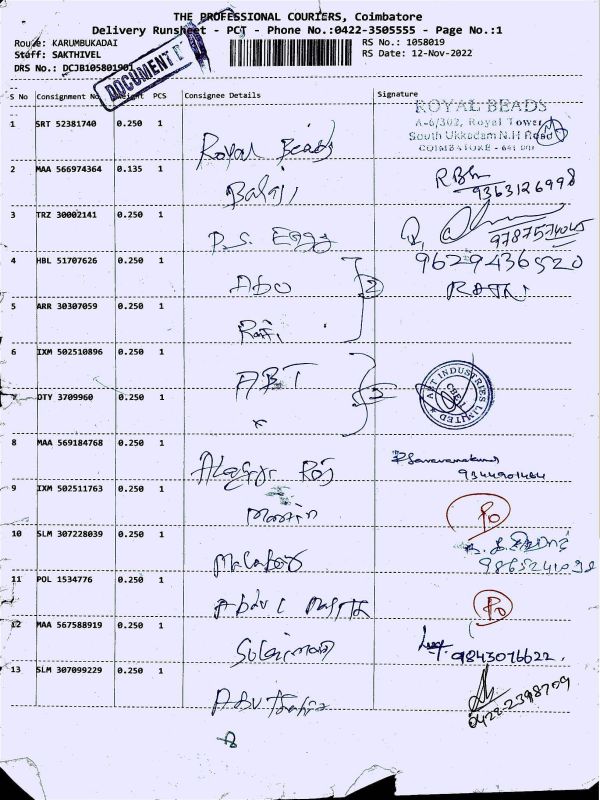 THE PROFESSIONAL COURIERS, Coimbatore
Delivery Runsheet - PCT - Phone No.:0422-3505555 - Page No.:1
Route: KARUMBUKADAI RS No.: 1058019
Staff: SAKTHIVEL RS Date: 12-Nov-2022
DRS No.: DCJB105801901
DOCUMENT
S No Consignment No Weight PCS Consignee Details Signature
ROYAL BEADS
A-6/302, Royal Tower
South Ukkadam N.H Road
COIMBATORE - 641 001
1 SRT 52381740 0.250 1 Royal Beads
2 MAA 566974364 0.135 1 Balaji 9363126998
3 TRZ 30002141 0.250 1 P.S. Egg
4 HBL 51707626 0.250 1 Abu 9629436520
5 ARR 30307059 0.250 1 Rafi
6 IXM 502510896 0.250 1 ABT
ABT INDUSTRIES LIMITED
CBE-1
7 OTY 3709960 0.250 1
8 MAA 569184768 0.250 1 9344901484
9 IXM 502511763 0.250 1 Martin
10 SLM 307228039 0.250 1
11 POL 1534776 0.250 1 Abdul
12 MAA 567588919 0.250 1 Sulaiman 9843076622.
13 SLM 307099229 0.250 1 0422-2398709